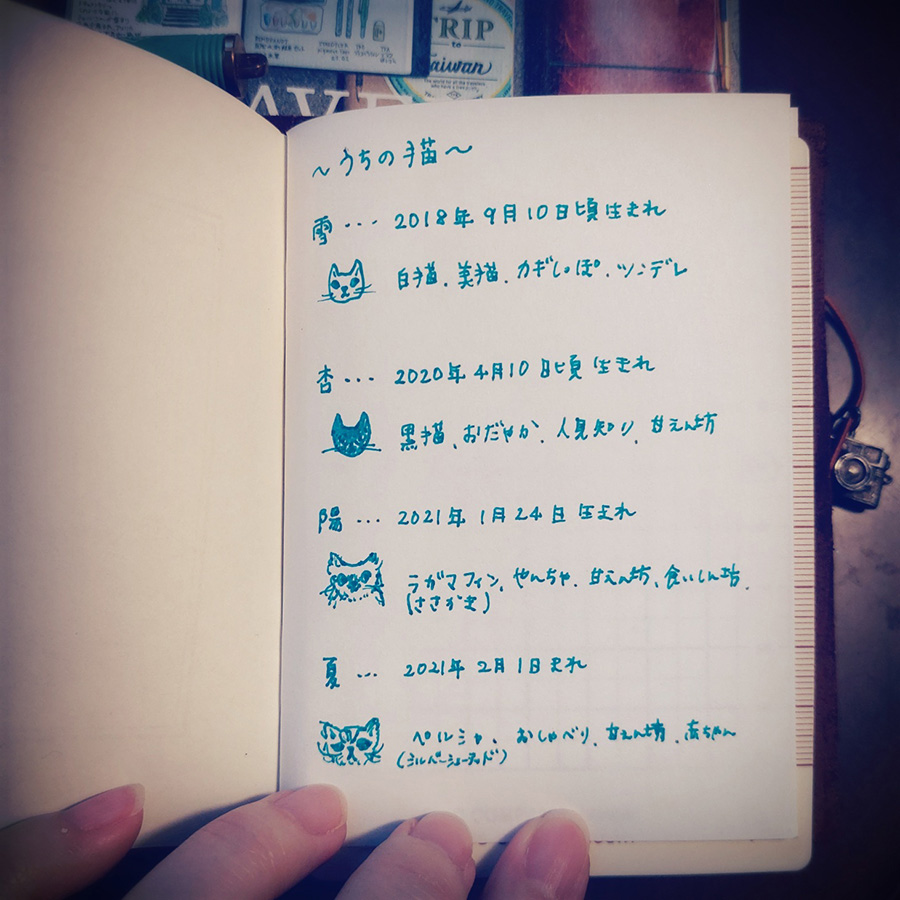 TRIP
to
Taiwan
～うちの猫～
雪・・・2018年9月10日頃生まれ
白猫、美猫、カギしっぽ、ツンデレ
杏・・・2020年4月10日頃生まれ
黒猫、おだやか、人見知り、甘えん坊
陽・・・2021年1月24日生まれ
ラガマフィン、やんちゃ、甘えん坊、食いしん坊、
(ささがき)
夏・・・2021年2月1日生まれ
ペルシャ、おしゃべり、甘えん坊、赤ちゃん
(シルバーシェーデッド)